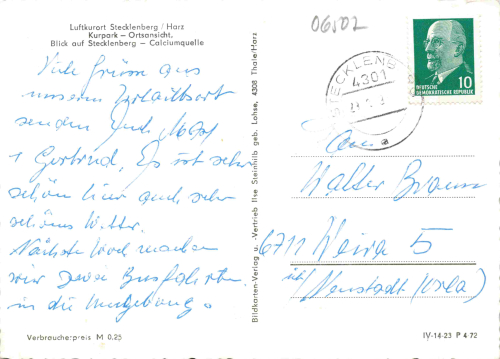 Luftkurort Stecklenberg / Harz
Kurpark – Ortsansicht.
Blick auf Stecklenberg – Calciumquelle
06502
STECKLENB
4301
a
10
DEUTSCHE
DEMOKRATISCHE REPUBLIK
Viele Grüsse aus
unserem Urlaubsort
senden
Gertrud, Es ist sehr
schön hier auch sehr
schönes Wetter.
Nächste Woche machen
wir zwei Busfahrten
in die Umgebung.
Bildkarten-Verlag u. -Vertrieb Ilse Steinhilb geb. Lohse, 4308 Thale/Harz
Walter Braun
6711 Weira 5
üb/ Neustadt (Orla)
Verbraucherpreis M 0,25
IV-14-23 P 4-72